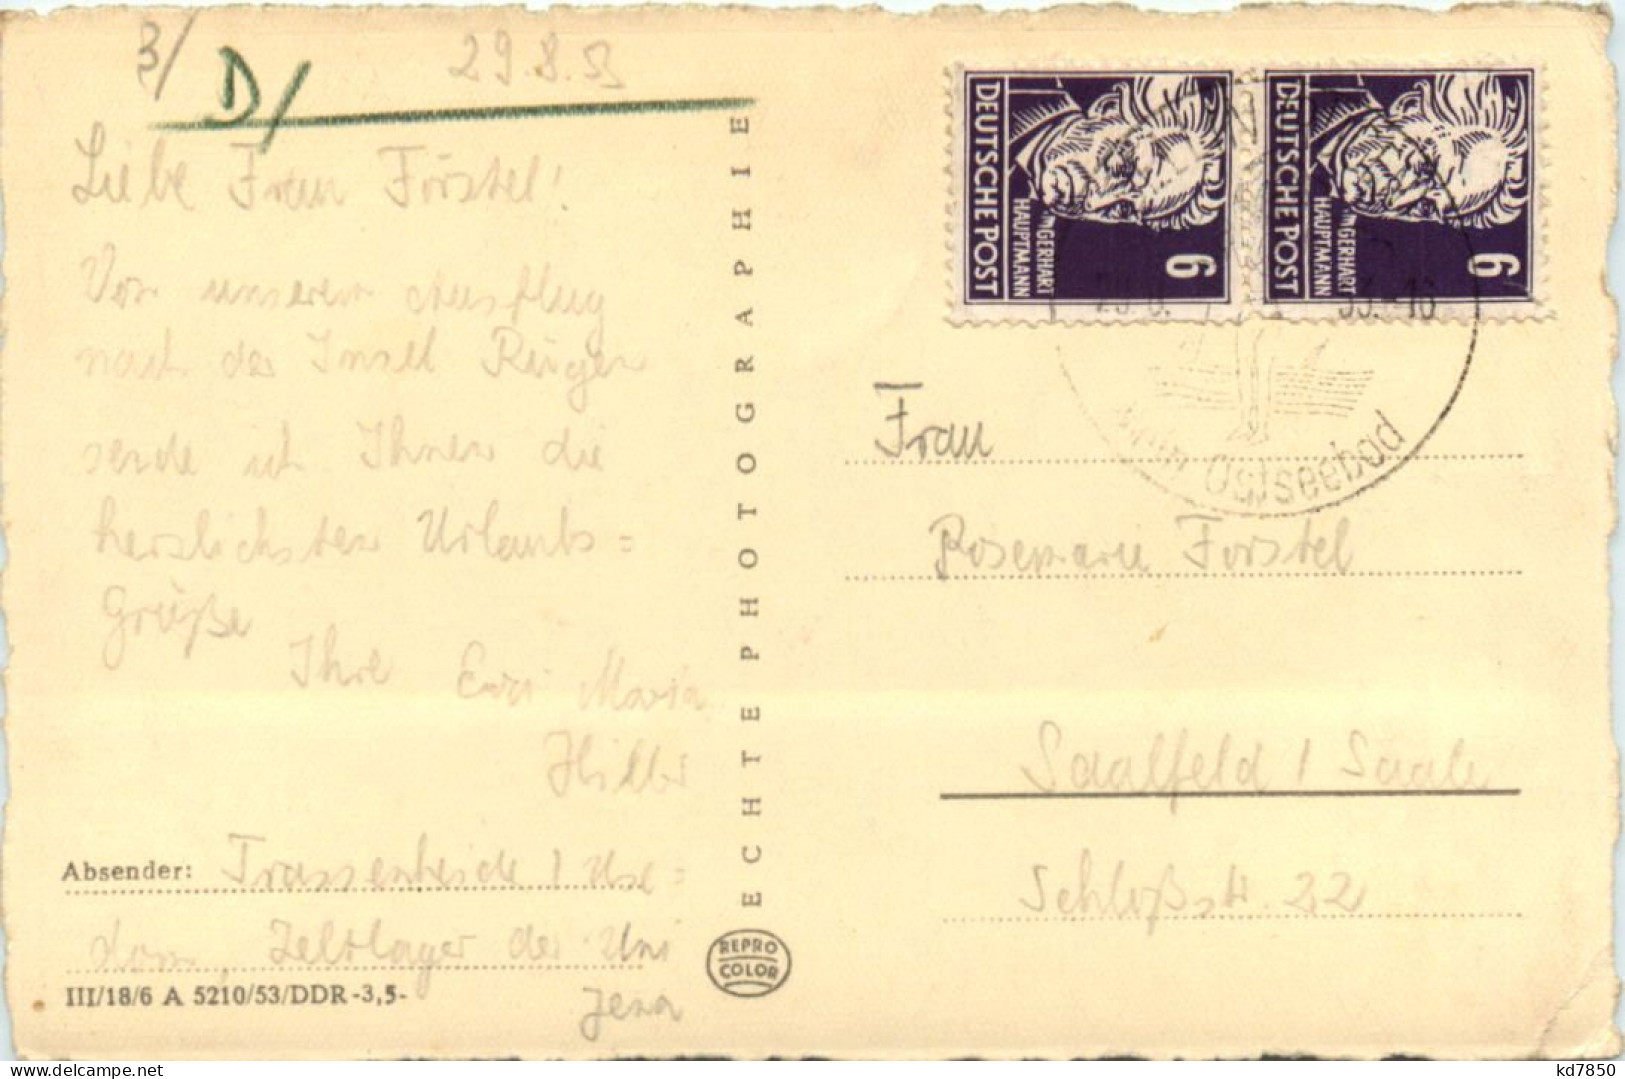 3/ D/ 29.8.53
Liebe Frau Förstel!
Von unserem Ausflug
nach der Insel Rügen
sende ich Ihnen die
herzlichsten Urlaubs=
Grüße
Ihre Eva Maria
Hiller
Absender: Trassenheide / Use=
dom, Zeltlager der Uni
Jena
III/18/6 A 5210/53/DDR -3,5-
ECHTE PHOTOGRAPHIE
REPRO
COLOR
DEUTSCHE POST
GERHART
HAUPTMANN
6
DEUTSCHE POST
GERHART
HAUPTMANN
6
29.8. 53.-16
Ostseebad
Frau
Rosemarie Förstel
Saalfeld / Saale
Schloßstr. 22
kd7850